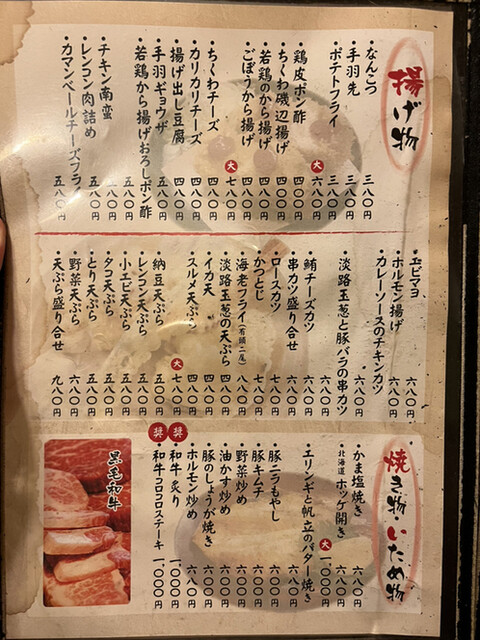 揚げ物
・なんこつ 三八〇円
・手羽先 三八〇円
・ポテトフライ 三八〇円
大 六八〇円
・鶏皮ポン酢 四〇〇円
・ちくわ磯辺揚げ 四〇〇円
・若鶏のから揚げ 四八〇円
・ごぼうから揚げ 四八〇円
大 七八〇円
・ちくわチーズ 四八〇円
・カリカリチーズ 四八〇円
・揚げ出し豆腐 四八〇円
・手羽ギョウザ 五八〇円
・若鶏から揚げおろしポン酢 五八〇円
・チキン南蛮 五八〇円
・レンコン肉詰め 五八〇円
・カマンベールチーズフライ 五八〇円
・エビマヨ 六八〇円
・ホルモン揚げ 六八〇円
・カレーソースのチキンカツ
六八〇円
・淡路玉葱と豚バラの串カツ
六八〇円
・鮪チーズカツ 六八〇円
・串カツ盛り合せ 六八〇円
・ロースカツ 七八〇円
・かつとじ 七八〇円
・海老フライ(有頭二尾) 八八〇円
・淡路玉葱の天ぷら 四八〇円
・イカ天 四八〇円
・スルメ天ぷら 四八〇円
大 七八〇円
・納豆天ぷら 五〇〇円
・レンコン天ぷら 五八〇円
・小エビ天ぷら 五八〇円
・タコ天ぷら 五八〇円
・とり天ぷら 五八〇円
・野菜天ぷら 六八〇円
・天ぷら盛り合せ 九八〇円
焼き物・いため物
・かま塩焼き 六八〇円
・北海道ホッケ開き 六八〇円
大 一、〇〇〇円
・エリンギと帆立のバター焼き
六八〇円
・豚ニラもやし 六〇〇円
・豚キムチ 六〇〇円
・野菜炒め 六〇〇円
・油かす炒め 六〇〇円
・豚のしょうが焼き 六〇〇円
・ホルモン炒め 六八〇円
奨 ・和牛炙り 一、〇〇〇円
奨 ・和牛コロコロステーキ 一、〇〇〇円
黒毛和牛